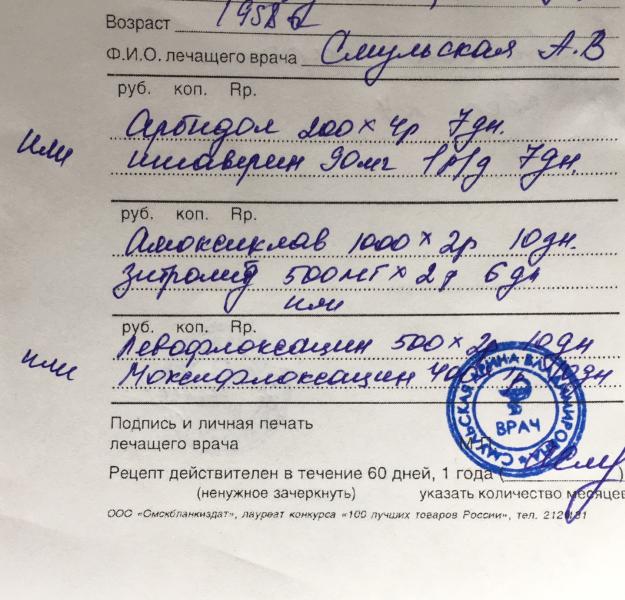 Возраст 1958
Ф.И.О. лечащего врача Смульская А.В
руб. коп. Rp.
Арбидол 200 х 4р 7дн.
или
ингаверин 90мг 1р/д 7дн.
руб. коп. Rp.
Амоксиклав 1000 х 2р 10дн.
Зитролид 500мг х 2д 6дн
или
руб. коп. Rp.
Левофлоксацин 500 х 2р 10дн
или
Моксифлоксацин 10дн
Подпись и личная печать
лечащего врача М.П.
СМУЛЬСКАЯ ВЛАДИМИРОВНА
ВРАЧ
Рецепт действителен в течение 60 дней, 1 года (
(ненужное зачеркнуть) указать количество месяцев
ООО «Омскбланкиздат», лауреат конкурса «100 лучших товаров России», тел.